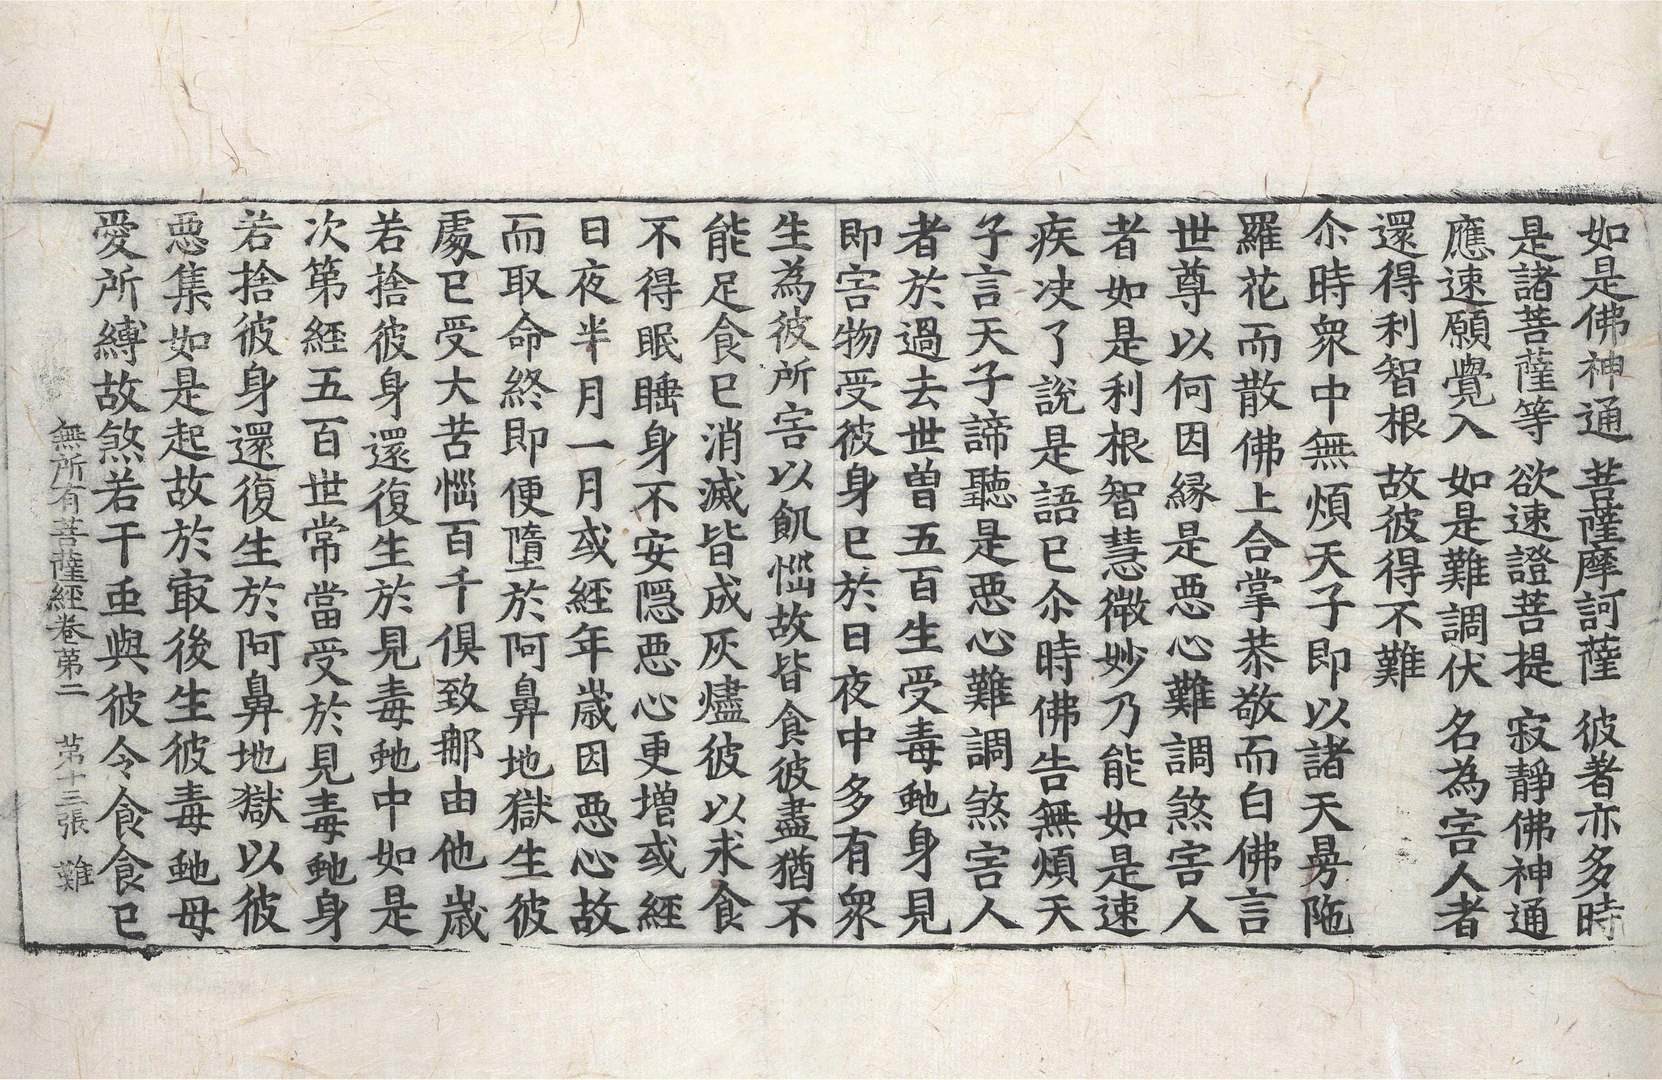 如是佛神通 菩薩摩訶薩 彼者亦多時
是諸菩薩等 欲速證菩提 寂靜佛神通
應速願覺入 如是難調伏 名為害人者
還得利智根 故彼得不難
尒時衆中無煩天子即以諸天曼陁
羅花而散佛上合掌恭敬而白佛言
世尊以何因縁是惡心難調煞害人
者如是利根智慧微妙乃能如是速
疾决了說是語已尒時佛告無煩天
子言天子諦聽是惡心難調煞害人
者於過去世曾五百生受毒虵身見
即害物受彼身已於日夜中多有衆
生為彼所害以飢惱故皆食彼盡猶不
能足食已消滅皆成灰燼彼以求食
不得眠睡身不安隱惡心更增或經
日夜半月一月或經年歲因惡心故
而取命終即便墮於阿鼻地獄生彼
處已受大苦惱百千俱致那由他歲
若捨彼身還復生於見毒虵中如是
次第經五百世常當受於見毒虵身
若捨彼身還復生於阿鼻地獄以彼
惡集如是起故於㝡後生彼毒虵母
愛所縛故煞若干虫與彼令食食已
無所有菩薩經卷第二 第十三張 難